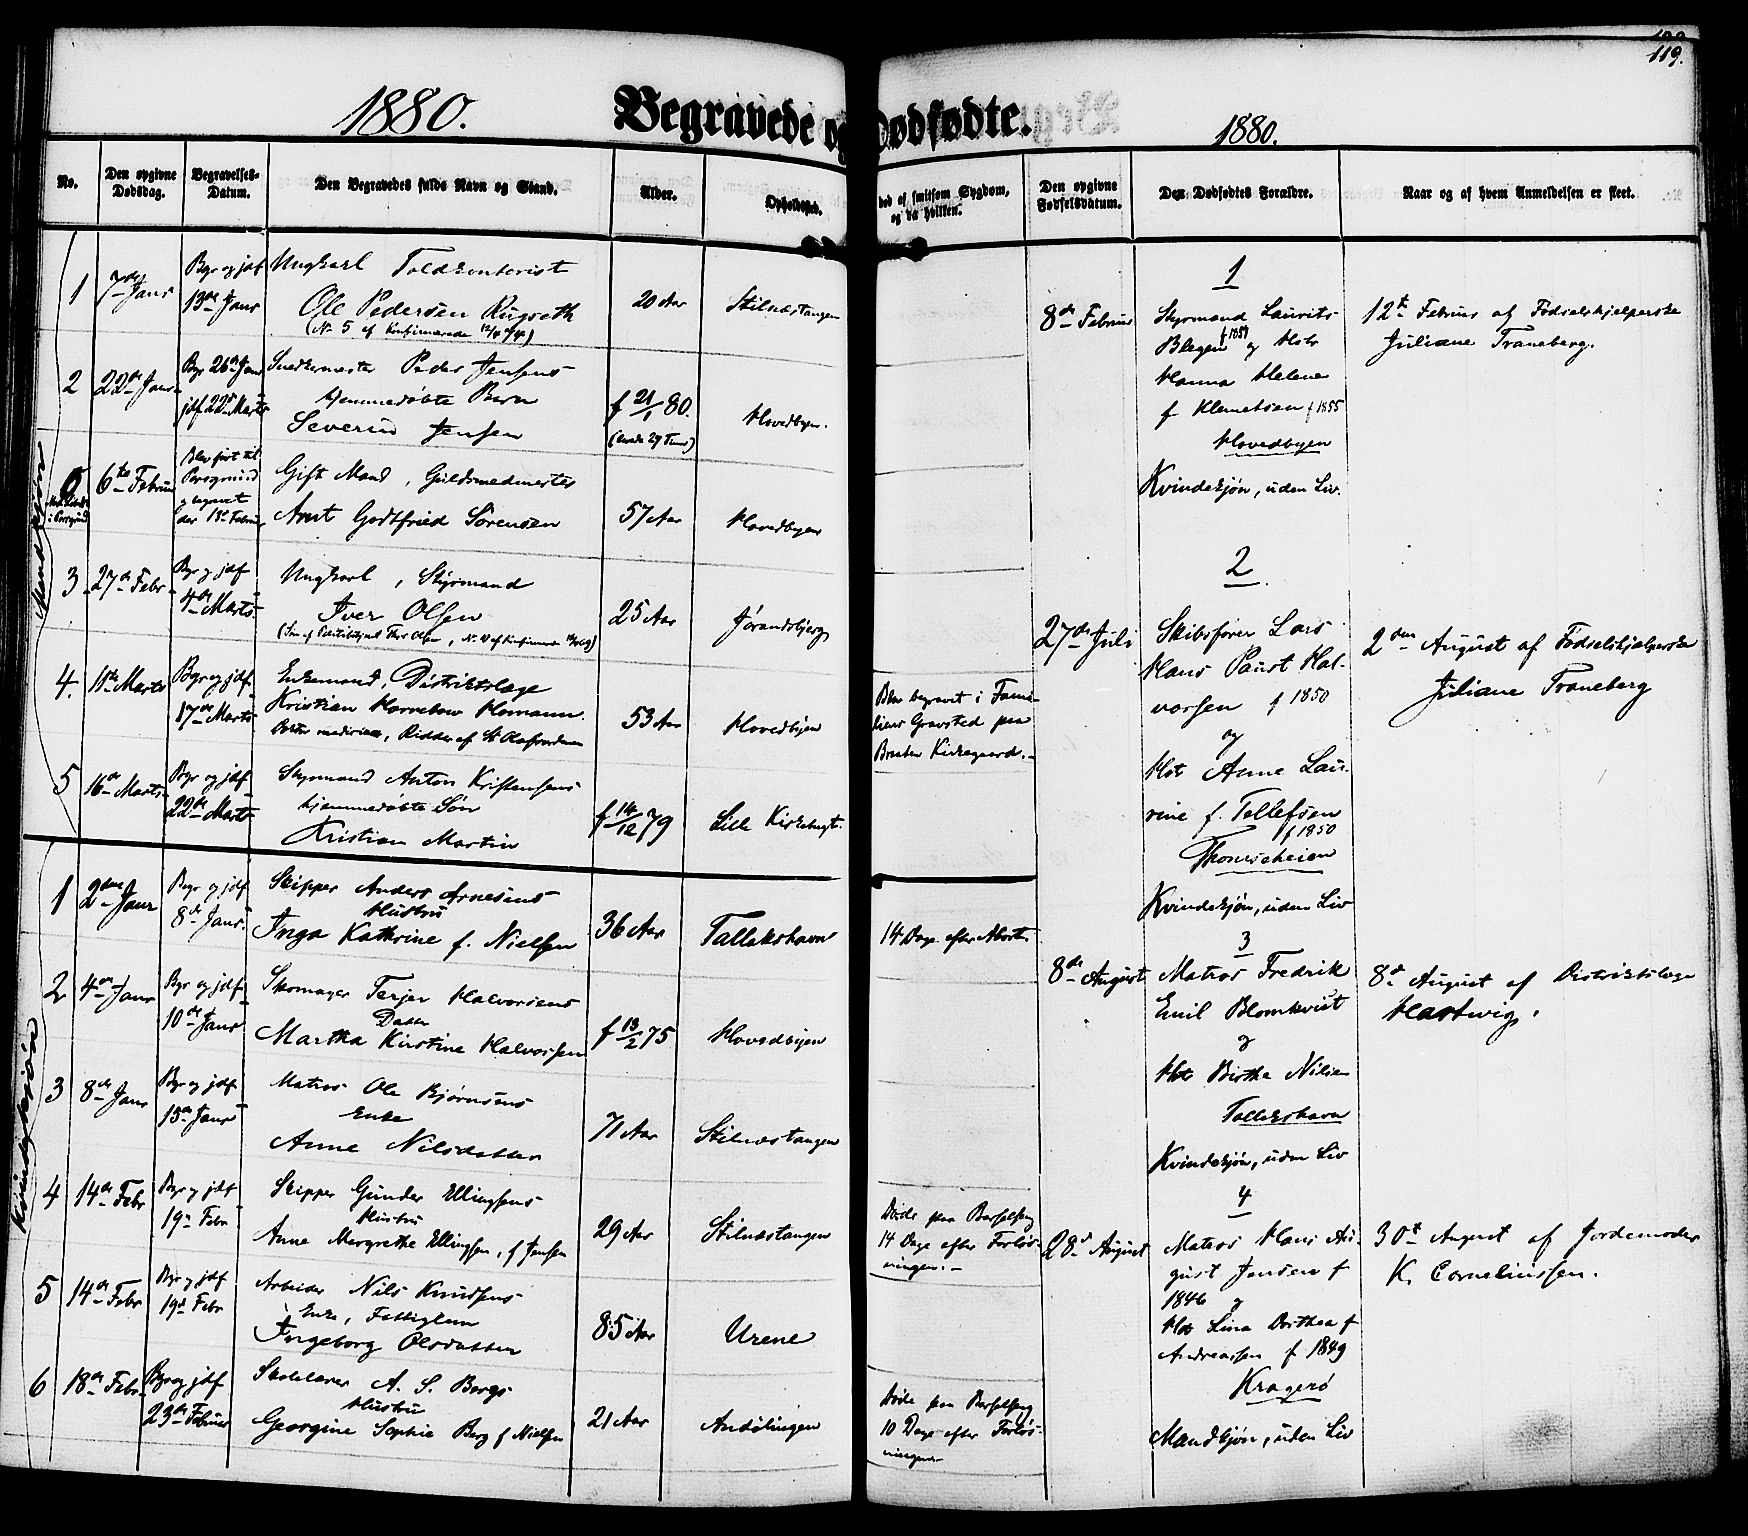 119.
1880.
Begravede og Dødfødte.
1880.
No.
Den opgivne Dødsdag.
Begravelses-Datum.
Den Begravedes fulde Navn og Stand.
Alder.
Opholdssted.
død af smitsom Sygdom, og da hvilken.
Den opgivne Fødselsdatum.
Den Dødfødtes Forældre.
Naar og af hvem Anmeldelsen er skeet.
Mandkjøn
1
7de Janr
Begr og jdf
13de Janr
Ungkarl Toldkontorist
Ole Pedersen Rugseth
(No 5 af Konfirmerede
20 Aar
Stilnæstangen
2
22de Janr
Begr 26de Janr
jdf 22de Marts
Snedkermester Peder Jensens
hjemmedøbte Barn
Severin Jensen
f 21/1 80.
Hovedbyen.
6te Februar
Blev ført til
Porsgrund
og begravet
der 13de Februar
Gift Mand, Guldsmedmester
Arnt Godtfried Sørensen
57 Aar
Hovedbyen
3
27de Febr
Begr og jdf
4de Marts
Ungkarl, Styrmand
Iver Olsen
25 Aar
Jørandsbjerg
4.
11te Marts
Begr og jdf
17de Marts
Enkemand, Distriktslæge
Kristian Horrebow Homann.
Ridder af St Olafsordenen
53 Aar
Hovedbyen
5
16de Marts
Begr og jdf
22de Marts
Styrmand Anton Kristensens
hjemmedøbte Søn
Kristian Martin
f 14/12 79
Lille Kirkebugt.
Kvindekjøn
1
2den Janr
Begr og jdf
8de Janr.
Skipper Anders Arnesens
Hustru
Inga Kathrine f. Nielsen
36 Aar
Tallakshavn
2
4de Janr
Begr og jdf
10de Janr
Skomager Terjer Halvorsens
Datter
Martha Kirstine Halvorsen
f 13/2 75
Hovedbyen
3
8de Janr
Begr og jdf
15de Janr
Matros Ole Bjørnsens
Enke
Anne Nilsdatter
71 Aar
Stilnæstangen
4
14de Febr
Begr og jdf
19de Febr
Skipper Gunder Ellingsens
Hustru
Anne Margrethe Ellingsen, f Jensen
29 Aar
Stilnæstangen
5
14de Febr
Begr og jdf
19de Febr
Arbeider Nils Knudsens
Enke, Fattiglem
Ingeborg Olsdatter
85 Aar
Urene
6
18de Febr
Begr og jdf
23de Februar
Skolelærer A. S. Bergs
Hustru
Georgine Sophie Berg f Nielsen
21 Aar
Andølingen
Blev begravet i Fami-
liens Gravsted paa
Kirkegaard.
14 Dage efter Abort.
Døde paa Barselseng
14 Dage efter Forløs-
ningen.
Døde paa Barselseng
10 Dage efter Forløs-
ningen
1
8de Februar
Styrmand Laurits
Blegen f 1851 og Hstr
Hanna Helene
f Klemetsen f 1855
Hovedbyen
Kvindekjøn, uden Liv.
12te Februar af Fødselshjælperske
Juliane Traneberg.
2
27de Juli
Skibsfører Lars
Hans Paust Hal-
vorsen f 1850
og
Hst Anne Lau-
rine f. Tellefsen
f 1850
Thomesheien
Kvindekjøn, uden Liv
2den August af Fødselshjælperske
Juliane Traneberg
3
8de August
Matros Fredrik
Emil Blomkvist
og
Hst Birthe Nilsen
Tallakshavn
Kvindekjøn, uden Liv
8de August af Distriktslæge
Hartwig.
4
28de August
Matros Hans Au-
gust Jensen f
1846 og
Hst Lina Dorthea f
Andreassen f 1849
Kragerø
Mandkjøn, uden Liv
30te August af Jordemoder
K. Corneliussen.